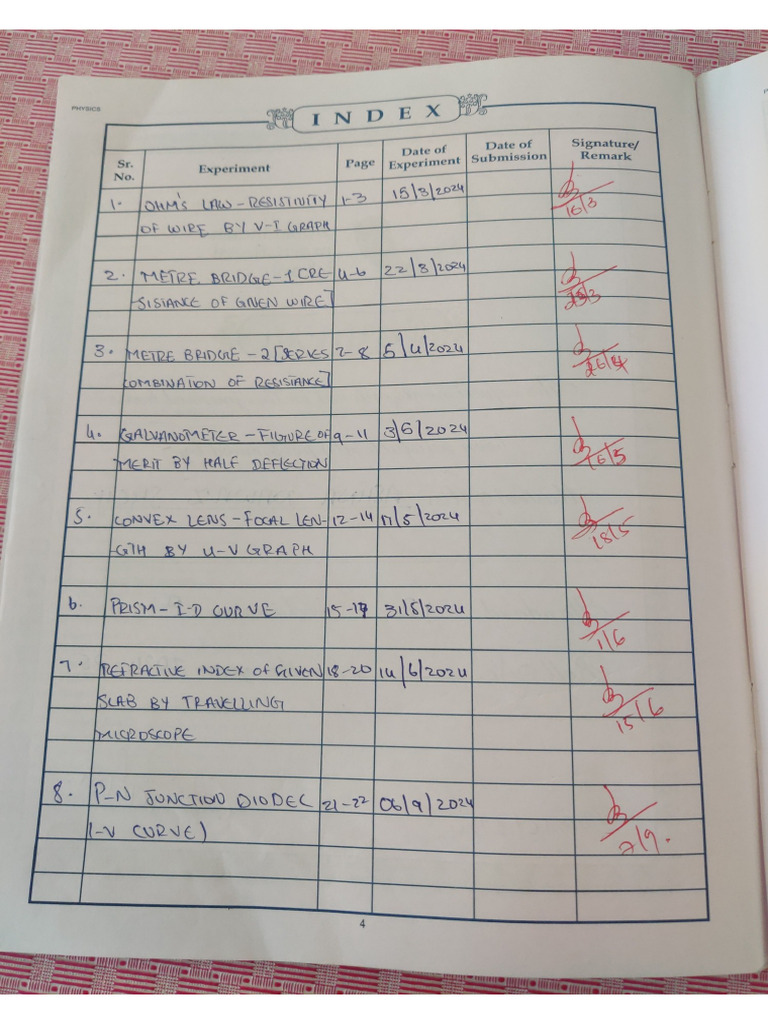 PHYSICS
INDEX
Sr. No. Experiment Page Date of Experiment Date of Submission Signature/ Remark
1. OHM'S LAW - RESISTIVITY 1-3 15/3/2024
OF WIRE BY V-I GRAPH 16/3
2. METRE BRIDGE - 1 [RE 4-6 22/3/2024
SISTANCE OF GIVEN WIRE] 23/3
3. METRE BRIDGE - 2 [SERIES 7-8 5/4/2024
COMBINATION OF RESISTANCE] 26/4
4. GALVANOMETER - FIGURE OF 9-11 3/5/2024
MERIT BY HALF DEFLECTION 16/5
5. CONVEX LENS - FOCAL LEN- 12-14 17/5/2024
GTH BY U-V GRAPH 18/5
6. PRISM - I-D CURVE 15-17 31/5/2024
1/6
7. REFRACTIVE INDEX OF GIVEN 18-20 14/6/2024
SLAB BY TRAVELLING 15/6
MICROSCOPE
8. P-N JUNCTION DIODE( 21-22 06/9/2024
I-V CURVE) 7/9.
4